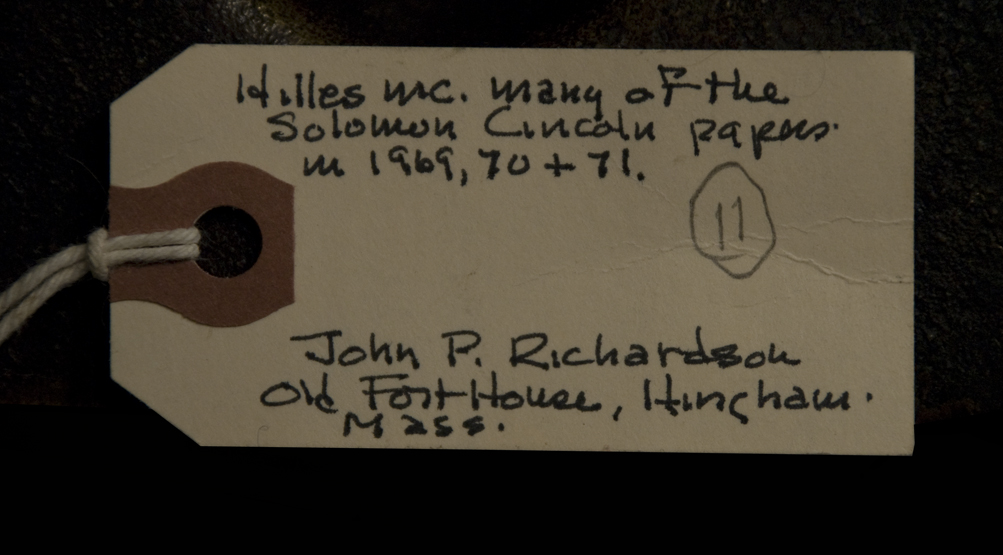 Hilles inc. many of the
Solomon Lincoln papers.
in 1969, 70 + 71.
11
John P. Richardson
Old Fort House, Hingham.
Mass.